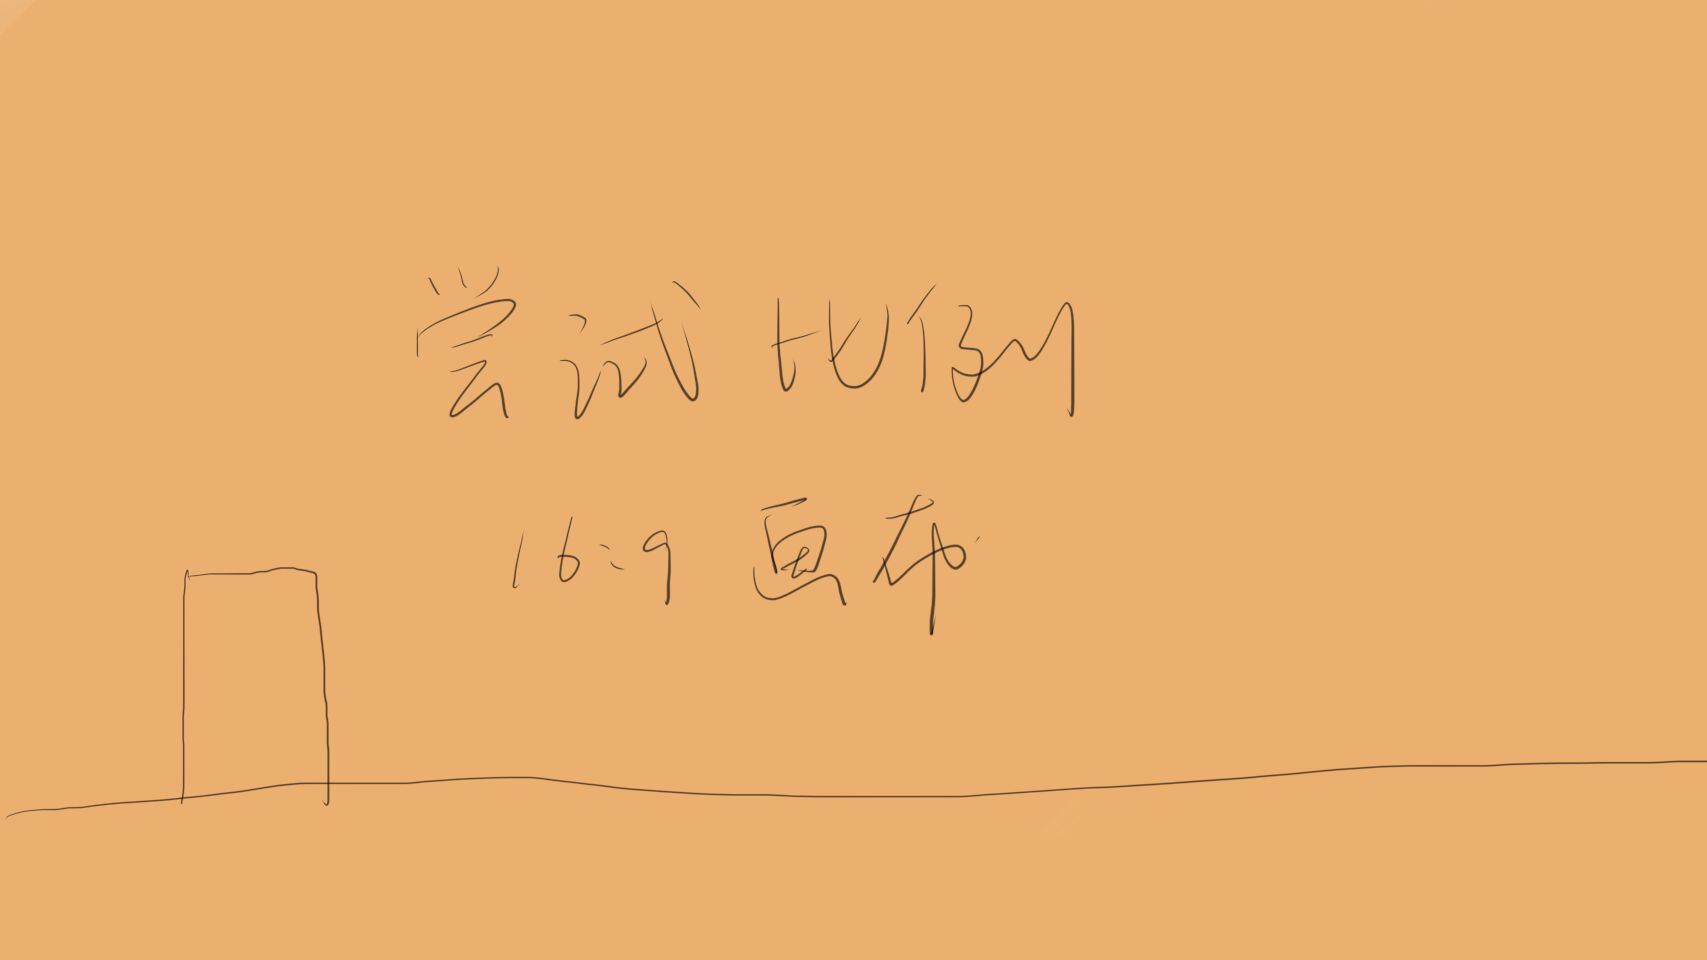 尝试比例
16:9 画布